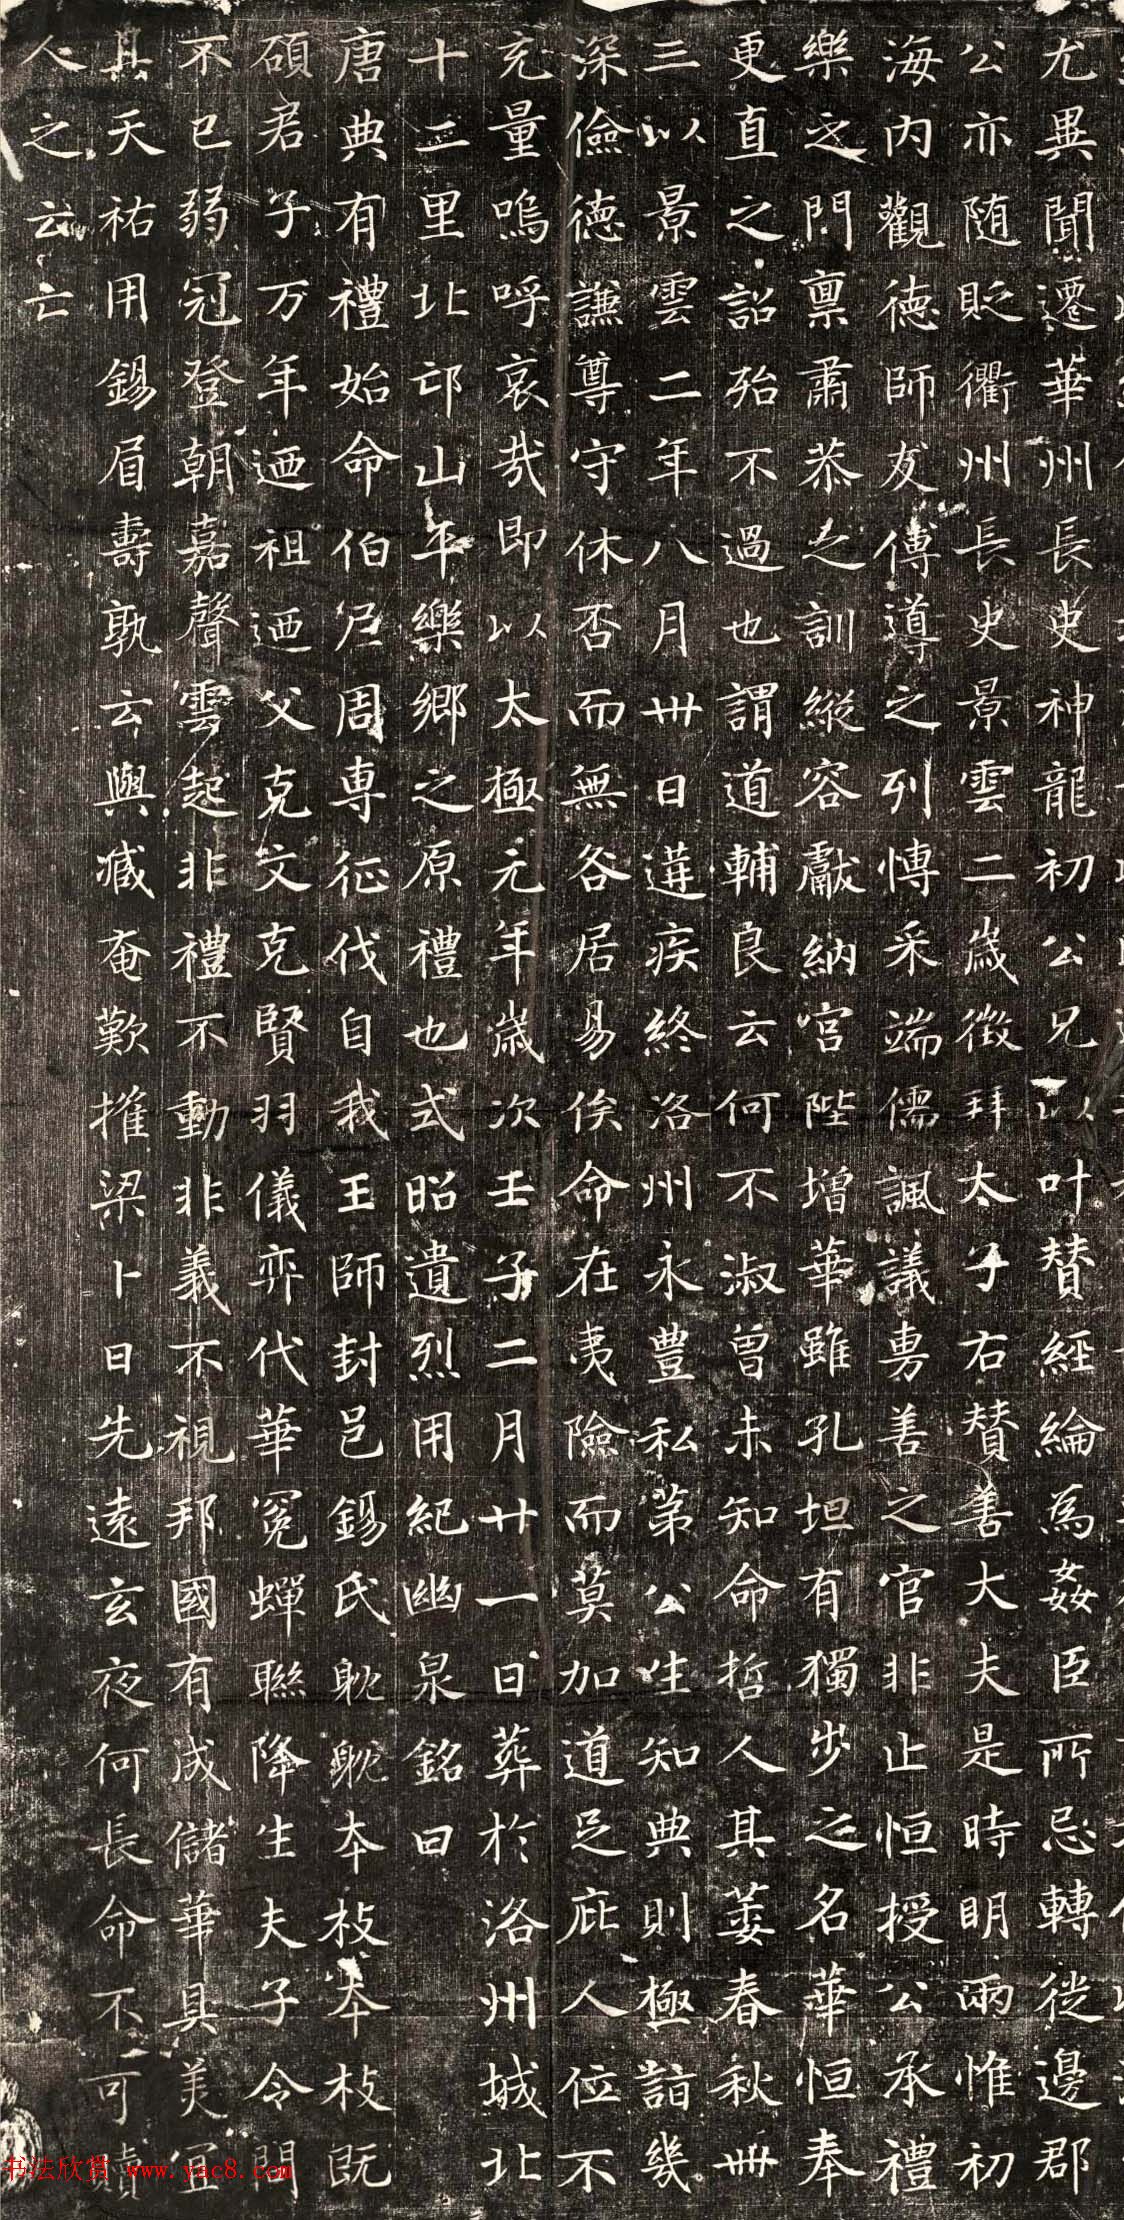 尤異聞遷華州長史神龍初公兄以叶賛經綸為姦臣所忌轉徙邊郡
公亦随貶衢州長史景雲二歲徴拜太子右賛善大夫是時明兩惟初
海内觀徳師友傅導之列慱采端儒諷議專善之官非止恒授公承禮
樂之門禀肅恭之訓縱容獻納宫陛增華雖孔坦有獨步之名華恒奉
更直之詔殆不過也謂道輔良云何不淑曽未知命哲人其萎春秋卌
三以景雲二年八月卅日遘疾終洛州永豊私第公生知典則極詣幾
深儉徳謙尊守休否而無咎居易俟命在夷險而莫加道足庇人位不
充量嗚呼哀哉即以太極元年歲次壬子二月廿一日葬於洛州城北
十二里北邙山平樂鄉之原禮也式昭遺烈用紀幽泉銘曰
唐典有禮始命伯尼周専征伐自我王師封邑錫氏躭躭本枝本枝既
碩君子万年迺祖迺父克文克賢羽儀弈代華冕蟬聯降生夫子令問
不已弱冠登朝嘉聲雲起非禮不動非義不視邦國有成儲華具美宜
其天祐用錫眉壽孰云與臧奄歎摧梁卜日先遠玄夜何長命不可贖
人之云亡
书法欣赏 www.yac8.com